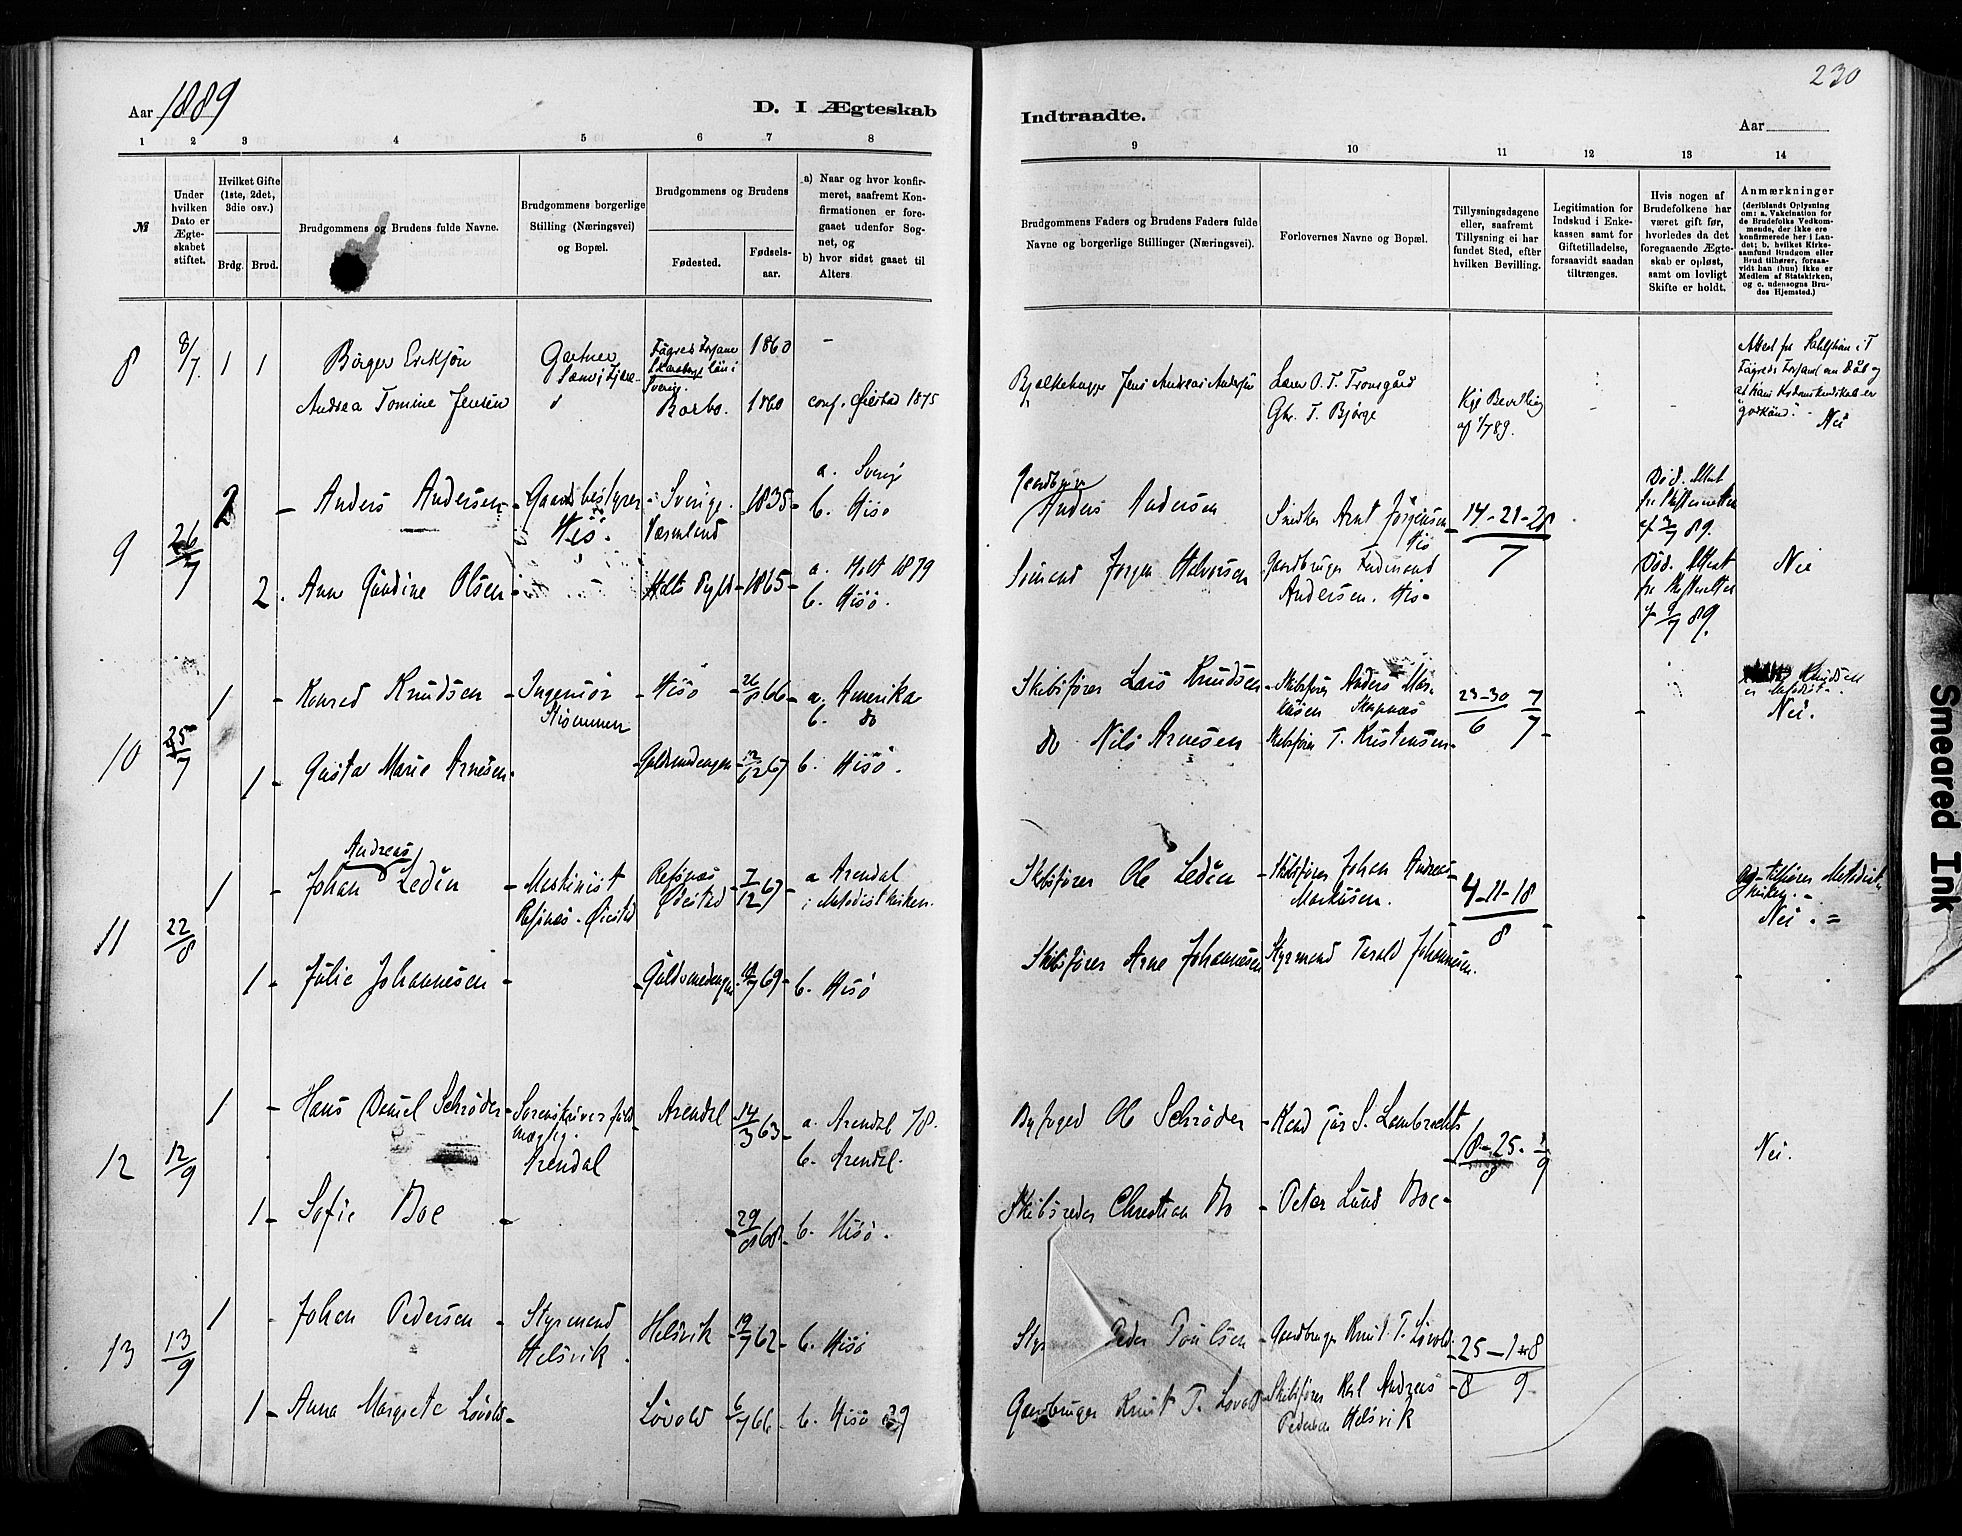 230
Aar 1889
D. I Ægteskab
Indtraadte.
Aar
1 2 3 4 5 6 7 8
9 10 11 12 13 14
№
Under hvilken Dato er Ægteskabet stiftet.
Hvilket Gifte (1ste, 2det, 3die osv.)
Brdg. Brud.
Brudgommens og Brudens fulde Navne.
Brudgommens borgerlige Stilling (Næringsvei) og Bopæl.
Brudgommens og Brudens
Fødested.
Fødselsaar.
a) Naar og hvor konfirmeret, saafremt Konfirmationen er foregaaet udenfor Sognet, og
b) hvor sidst gaaet til Alters
Brudgommens Faders og Brudens Faders fulde Navne og borgerlige Stillinger (Næringsvei).
Forlovernes Navne og Bopæl.
Tillysningsdagene eller, saafremt Tillysning ei har fundet Sted, efter hvilken Bevilling.
Legitimation for Indskud i Enkekassen samt for Giftetilladelse, forsaavidt saadan tiltrænges.
Hvis nogen af Brudefolkene har været gift før, hvorledes da det foregaaende Ægteskab er opløst, samt om lovligt Skifte er holdt.
Anmærkninger (deriblandt Oplysning om: a. Vakcination for de Brudefolks Vedkommende, der ikke ere konfirmerede her i Landet; b. hvilket Kirkesamfund Brudgom eller Brud tilhører, forsaavidt han (hun) ikke er Medlem af Statskirken, og c. udensogns Brudes Hjemsted.)
8 8/7 1 1 Børger Eriksson Gartner 1860 -
Andrea Tomine Jensen Barbo. 1860 conf. Øiestad 1875
Bjelkehugger Jens Andreas Andersen
Lærer O. T. Tromsgård
Gbr. T. Bjørge
Kgl Bevilling
Nei
9 26/7 2 - Anders Andersen - Gaardbestyrer - Sverige. 1835 - a. Sverig
Hisø. Værmland b. Hisø
2. Ane Gundine Olsen Holt 1865 - a. Holt 1879
b. Hisø.
Gaardbruger
Anders Andersen
Snedker Arnt Jørgensen
Hisø
14-21-28
7
Sømand Jørgen Halvorsen
Gaardbruger Ferdinand
Andersen. Hisø
Død. Attest
fr Skifteretten
af 3/7 89.
Død. Attest
fr Skifteretten
af 9/7 89.
Nei
10 25/7 1 - Konrad Knudsen - Ingeniør - Hisø - 66 - a. Amerika
b. do
1 - Gusta Marie Arnesen - Guldsmedengen 12/12 67 b. Hisø.
Skibsfører Lars Knudsen - Skibsfører Anders Markusen
23-30 7
6 7
do Nils Arnesen - Skibsfører T. Kristensen -
Knudsen
er Methodist.
Nei.
11 22/8 1 - Johan Andreas Ledin - Maskinist Refsnæs 7/12 67 - a Arendal
Refsnæs - Øiestad Øiestad i Metodistkirken.
1 - Julie Johannesen - Guldsmedengen 69 - b. Hisø
Skibsfører Ole Ledin - Skibsfører Johan Andreas
Markusen.
4-11-18
8
Skibsfører Arne Johannesen Styrmand Tarald Johannesen.
tilhører Metodist
kirken. -
Nei. =
12 12/9 1 - Hans Daniel Schrøder - Sorenskriverfuld
mægtig.
Arendal
Arendal 14/3 63 - a. Arendal 78.
b. Arendal.
1 - Sofie Boe - 29/8 68 - b. Hisø.
Byfoged Ole Schrøder - Kand jur S. Lambrechts
18-25- 1
8 9
Skibsreder Christian Bo - Peter Lund Boe -
Nei.
13 13/9 1 - Johan Pedersen - Styrmand Helsvik 19/7 62 - b. Hisø
Helsvik.
1 - Anna Margrete Løvold - Løvold 6/7 66 - b. Hisø
Styr Peder Poulsen - Gaardbruger Knut T. Løvold
25-1-8
8 9
Gaardbruger Knut T. Løvold - Skibsfører Karl Andreas
Pedersen Helsvik
Smeared Ink